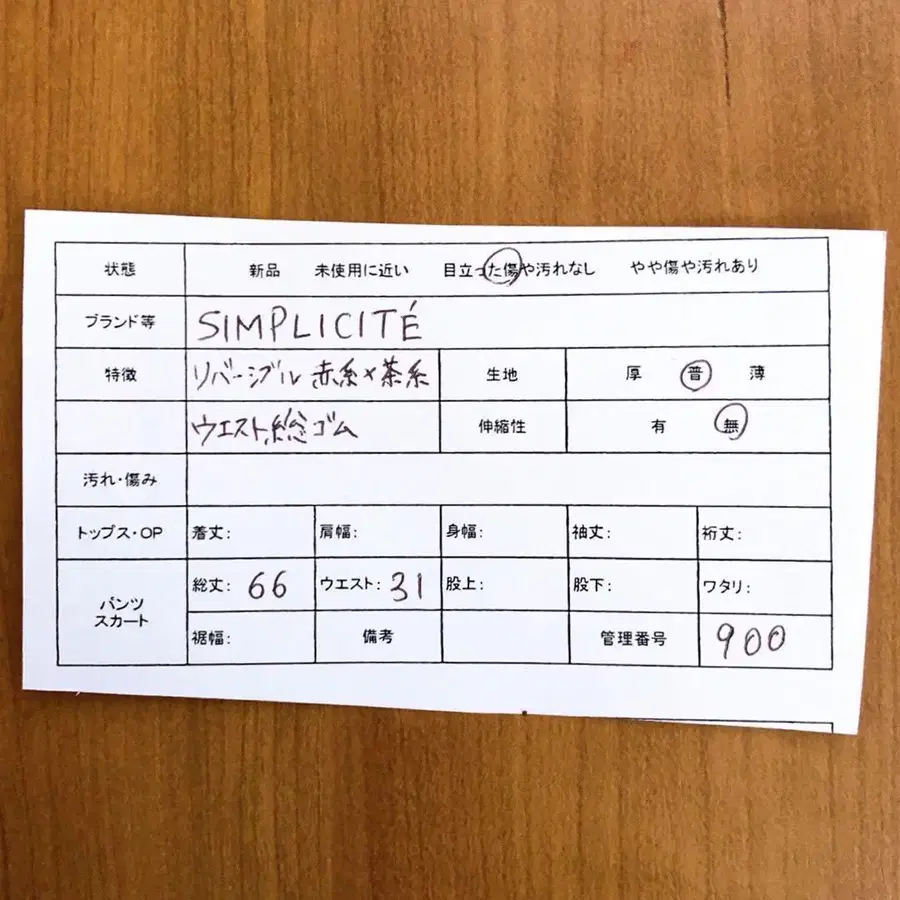 状態 新品 未使用に近い 目立った傷や汚れなし やや傷や汚れあり
ブランド等 SIMPLICITÉ
特徴 リバーシブル 赤系×茶系 生地 厚 普 薄
ウエスト総ゴム 伸縮性 有 無
汚れ・傷み
トップス・OP 着丈: 肩幅: 身幅: 袖丈: 裄丈:
パンツ スカート 総丈: 66 ウエスト: 31 股上: 股下: ワタリ:
裾幅: 備考 管理番号 900